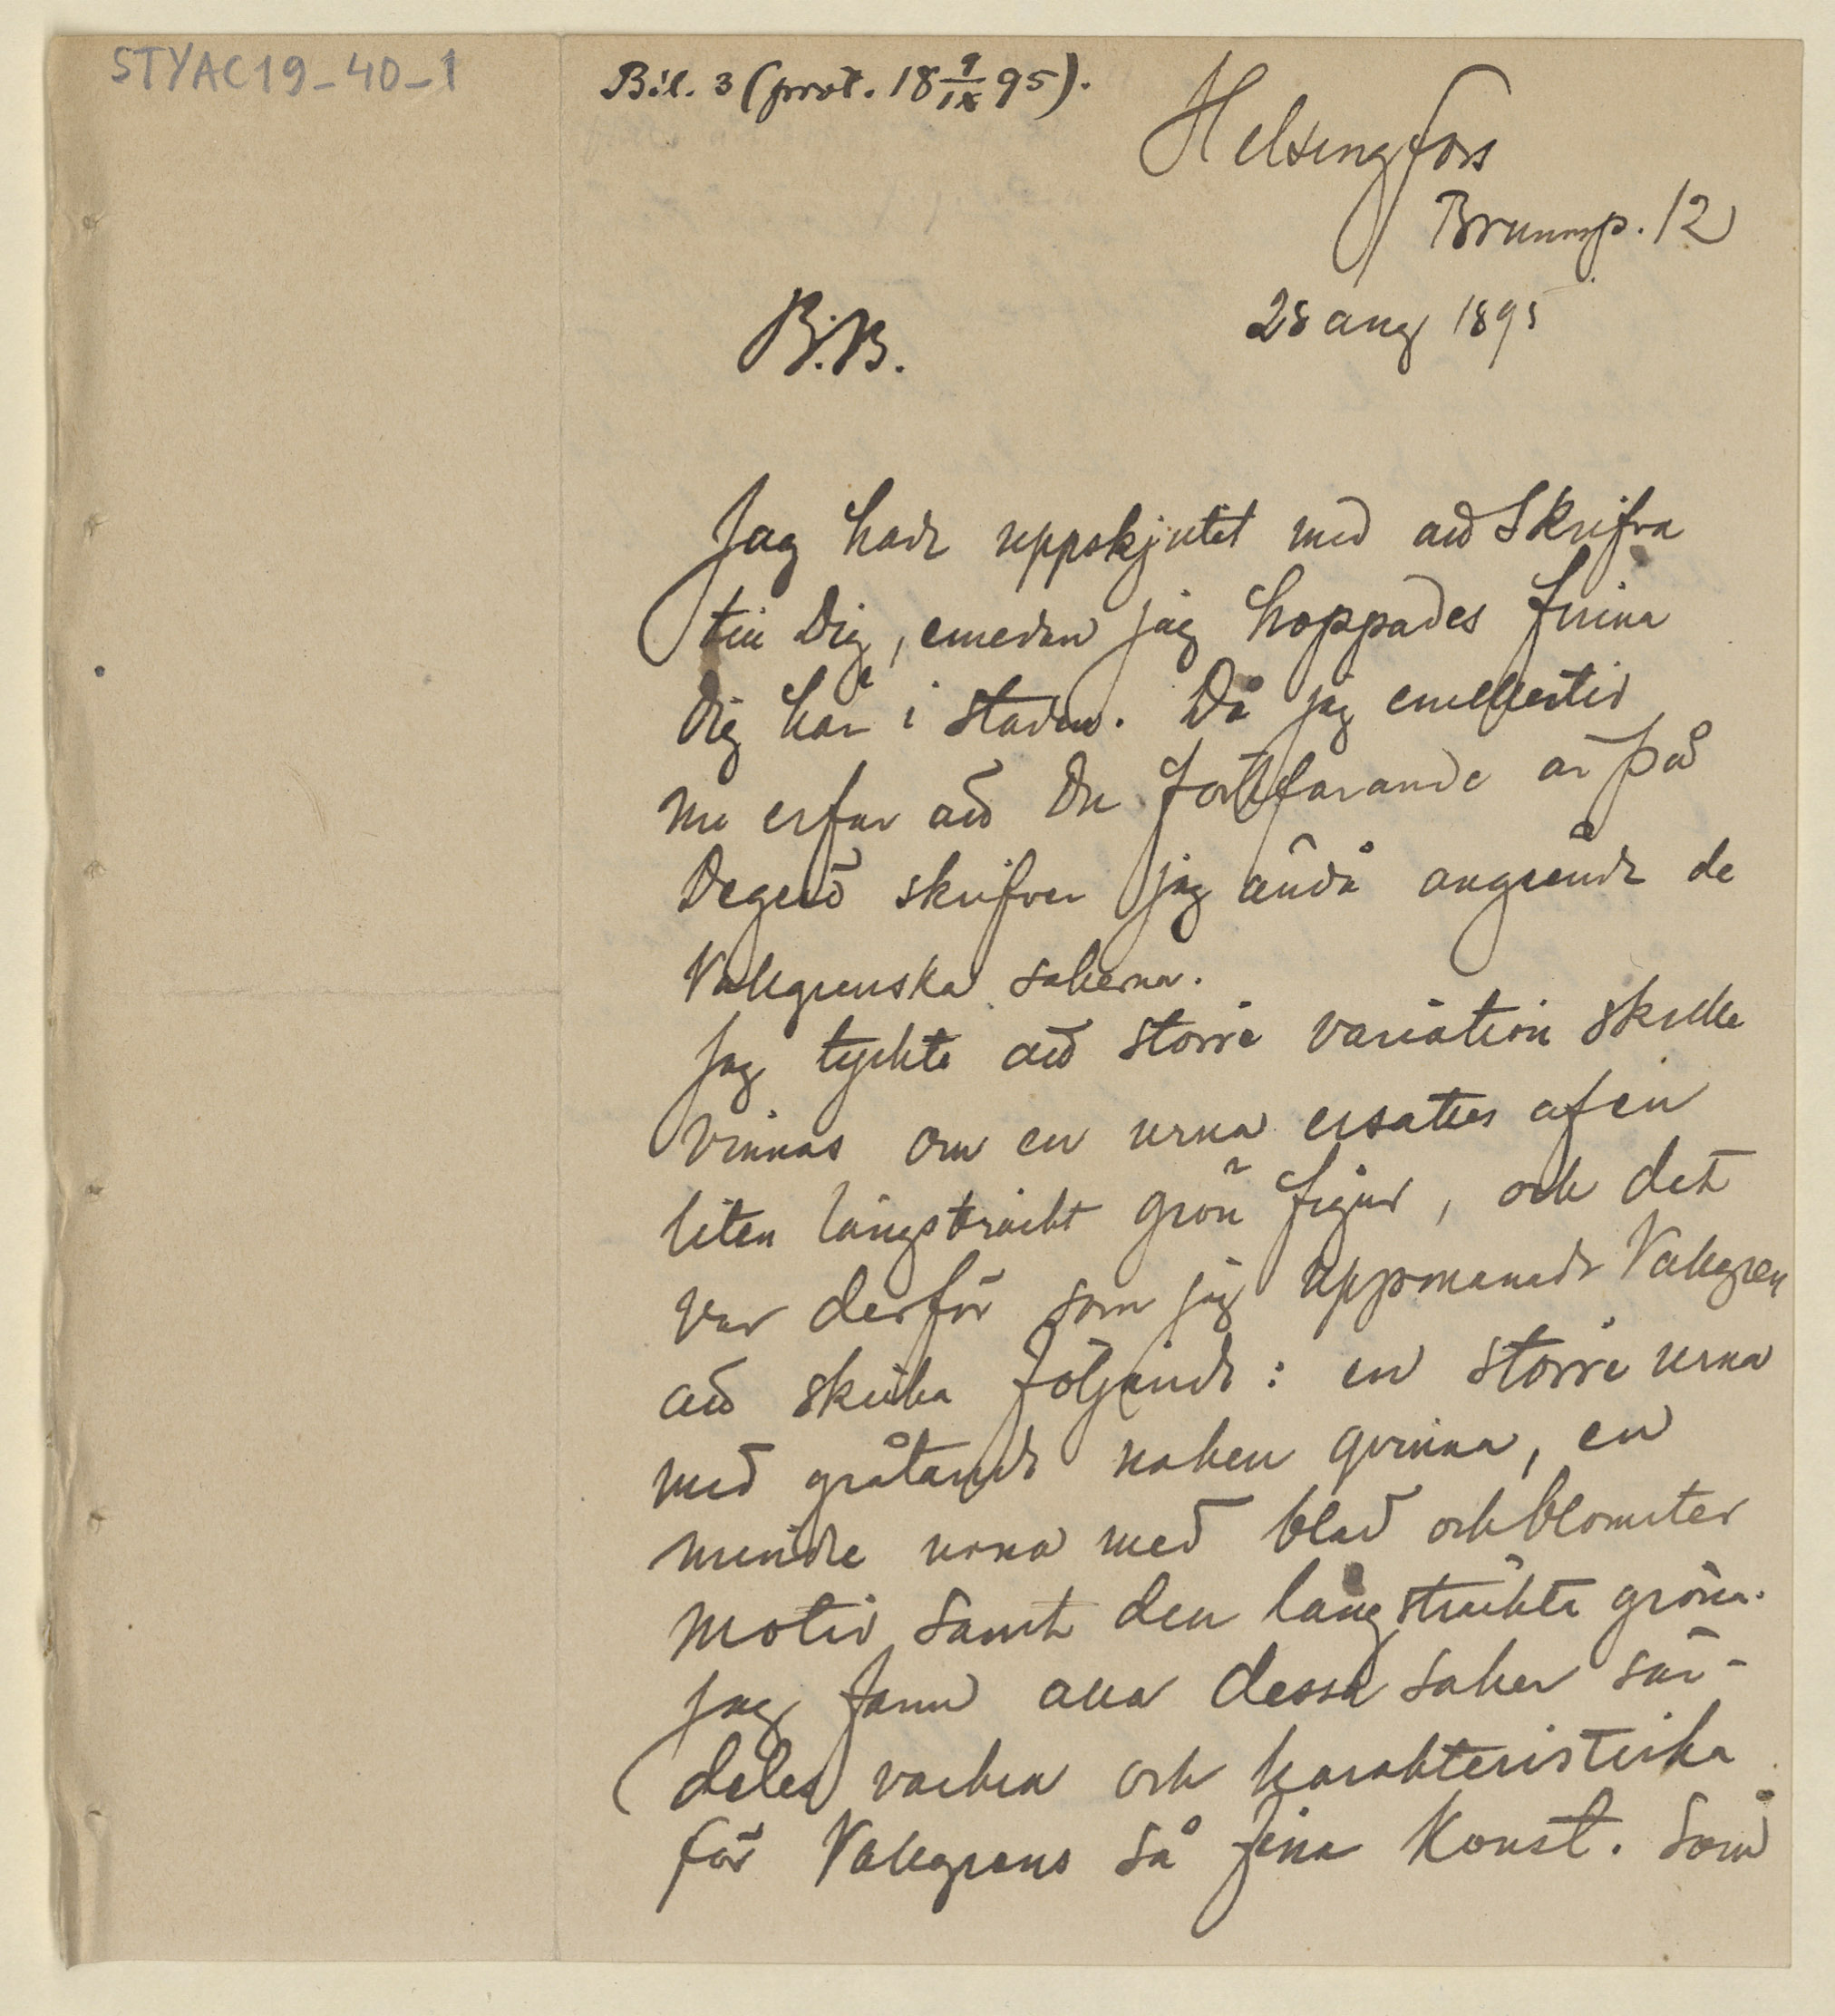 STYAC19-40-1
Bil. 3 (prot. 18 9/IX 95).
Helsingfors
Brunnsp. 12
28 aug 1895
B.B.
Jag hade uppskjutit med att skrifva
till Dig, emedan jag hoppades finna
Dig här i staden. Då jag emellertid
nu erfar att Du fortfarande är på
Degerö skrifver jag ändå angående de
Vallgrenska sakerna.
Jag tyckte att större variation skulle
vinnas om en urna ersattes af en
liten långsträckt grön figur, och det
var derför som jag uppmanade Vallgren
att skicka följande: en större urna
med gråtande naken qvinna, en
mindre urna med blad och blomster
motiv samt den långsträckta gröna.
Jag fann alla dessa saker sär-
deles vackra och karakteristiska
för Vallgrens så fina konst. Som